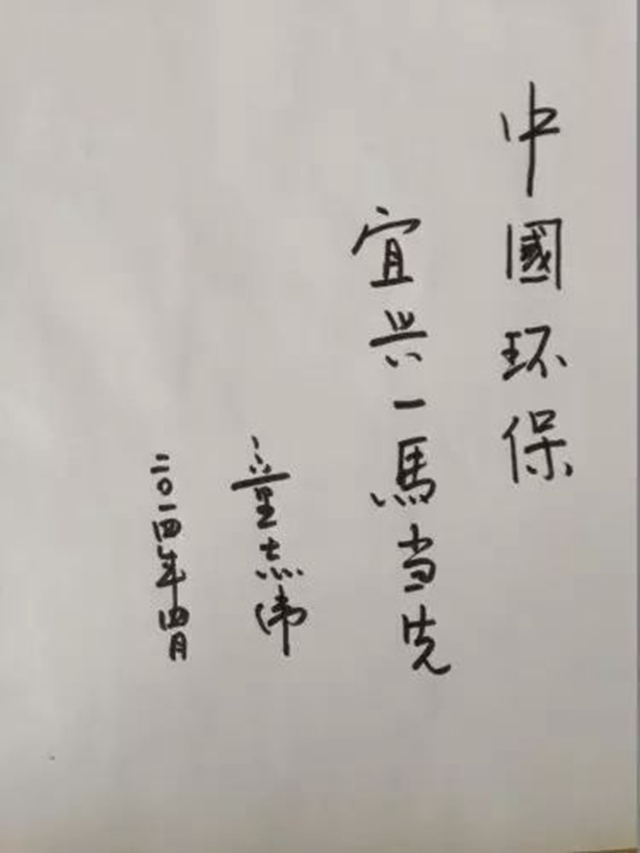 中國环保
宜兴一馬当先
童志伟
二〇一四年四月